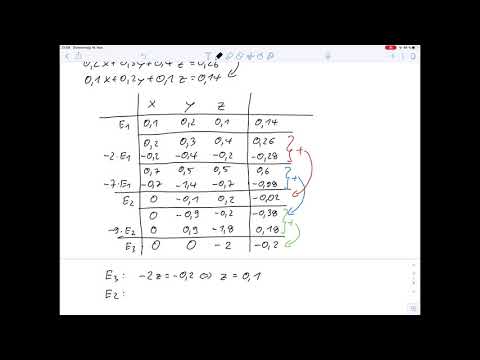 0,2x+0,3y+0,4z=0,26
0,1x+0,2y+0,1z=0,14
x y z
E1 0,1 0,2 0,1 0,14
0,2 0,3 0,4 0,26
-2·E1 -0,2 -0,4 -0,2 -0,28
0,7 0,5 0,5 0,6
-7·E1 -0,7 -1,4 -0,7 -0,98
E2 0 -0,1 0,2 -0,02
0 -0,9 -0,2 -0,38
-9·E2 0 0,9 -1,8 0,18
E3 0 0 -2 -0,2
E3: -2z=-0,2 ⇔ z=0,1
E2: